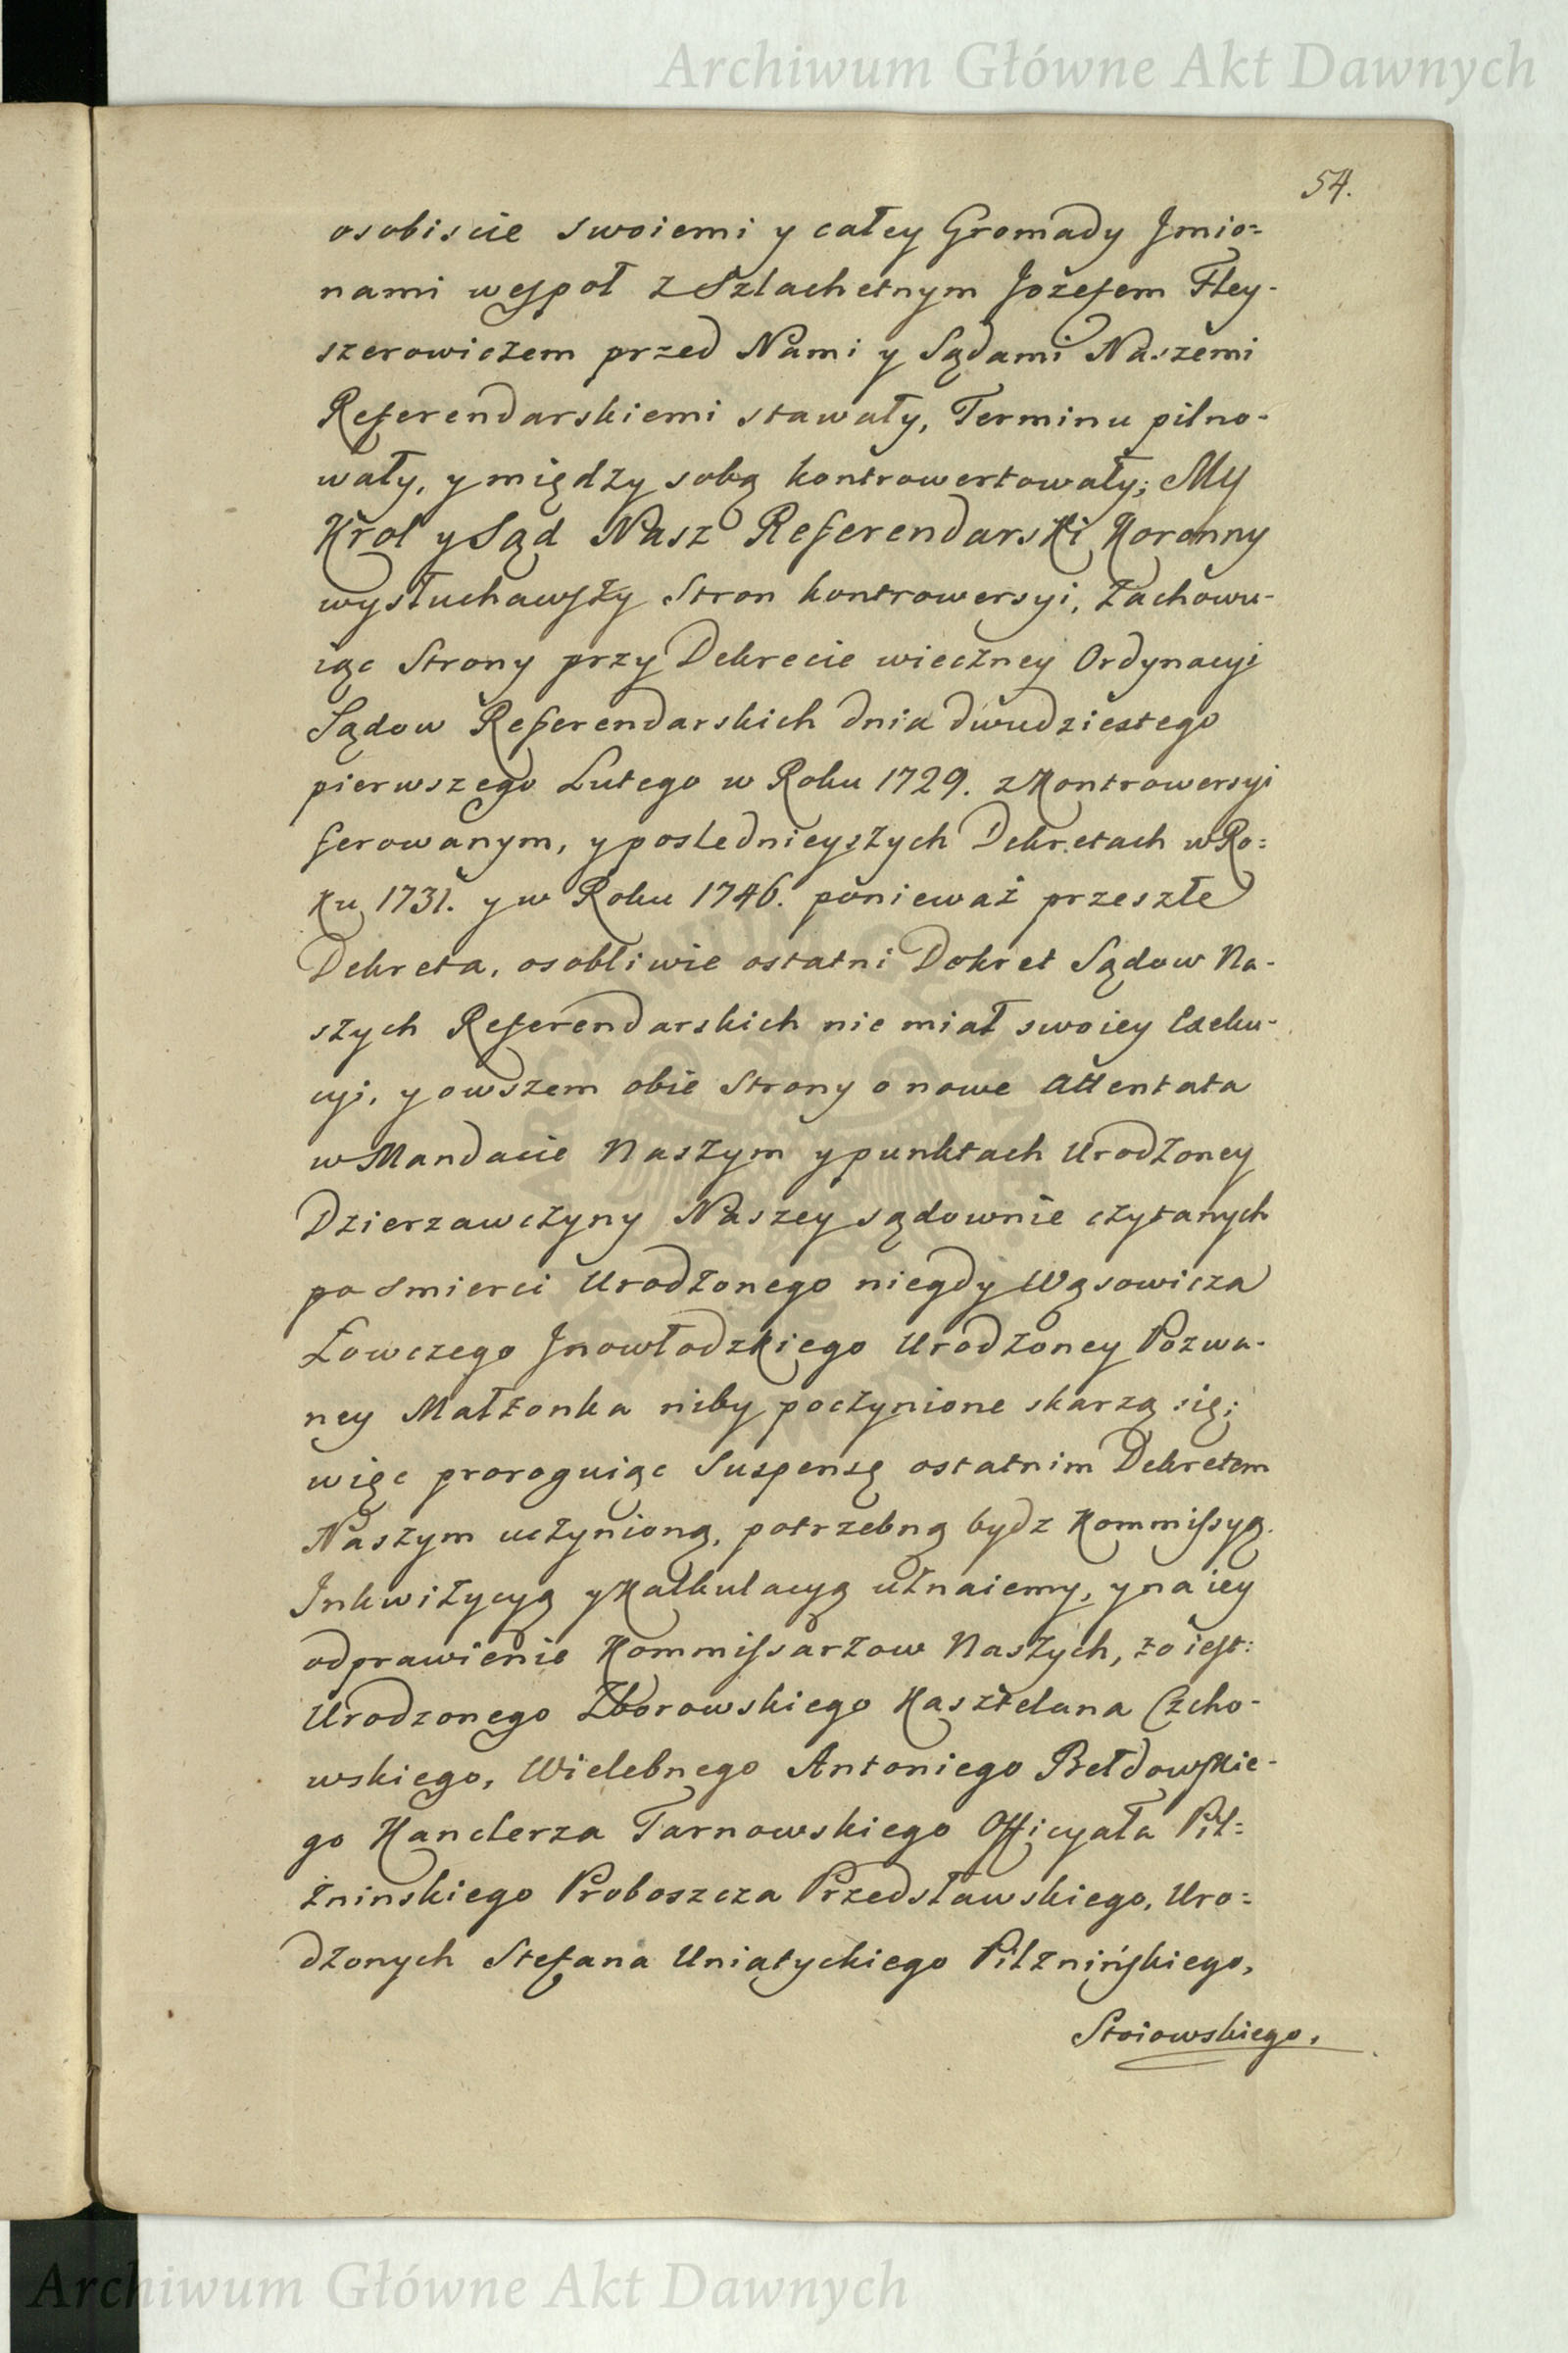 Archiwum Główne Akt Dawnych
54.
osobiscie swoiemi y całey Gromady Jmio=
nami wespoł z Szlachetnym Jozefem Fley-
szerowiczem przed Nami y Sądami Naszemi
Referendarskiemi stawały, Terminu pilno-
wały, y między sobą kontrowertowały; My
Krol y Sąd Nasz Referendarski Koronny
wysłuchawszy Stron kontrowersyi, zachowu-
iąc Strony przy Dekrecie wieczney Ordynacyi
Sądow Referendarskich dnia dwudziestego
pierwszego Lutego w Roku 1729. z Kontrowersyi
ferowanym, y poslednieyszych Dekretach w Ro=
ku 1731. y w Roku 1746. ponieważ przeszłe
Dekreta, osobliwie ostatni Dekret Sądow Na-
szych Referendarskich nie miał swoiey Exeku-
cyi, y owszem obie Strony o nowe Attentata
w Mandacie Naszym y punktach Urodzoney
Dzierzawczyny Naszey sądownie czytanych
po smierci Urodzonego niegdy Wąsowicza
Łowczego Jnowłodzkiego Urodzoney Pozwa-
ney Małżonka niby poczynione skarzą się;
więc proroguiąc Suspensę ostatnim Dekretem
Naszym uczynioną, potrzebną bydz Kommissyą.
Inkwizycyą y Kalkulacyą uznaiemy, y na iey
odprawienie Kommissarzow Naszych, to iest:
Urodzonego Zborowskiego Kasztelana Czcho-
wskiego, Wielebnego Antoniego Bełdowskie-
go Kanclerza Tarnowskiego Officyała Pil=
zninskiego Proboszcza Przedsławskiego, Uro=
dzonych Stefana Uniatyckiego Pilznińskiego,
Stoiowskiego.
Archiwum Główne Akt Dawnych